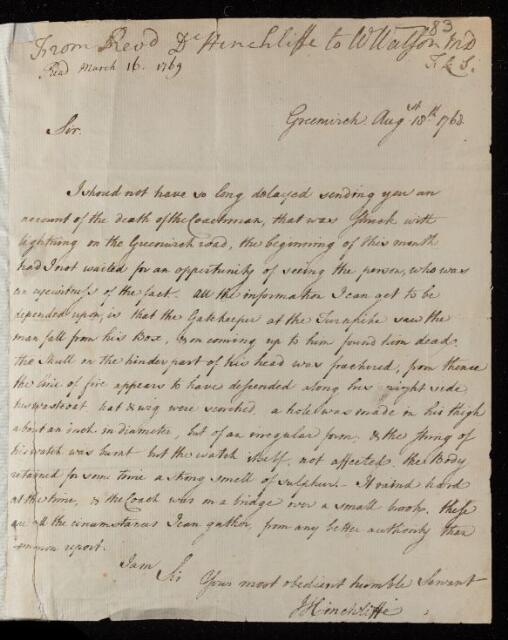 83
From Revd Dr Hinchliffe to W Watson MD
Read March 16. 1769 F.R.S.
Greenwich Augst 18th 1768.
Sir.
I should not have so long delayed sending you an
account of the death of the Coachman, that was struck with
lightning on the Greenwich road, the beginning of this month
had I not waited for an opportunity of seeing the person, who was
an eyewitness of the fact. All the information I can get to be
depended upon, is that the Gatekeeper at the Turnpike saw the
man fall from his Box, & on coming up to him found him dead.
the Skull on the hinder part of his head was fractured, from thence
the line of fire appears to have descended along his right side
his wastcoat hat & wig were scorched. a hole was made in his thigh
about an inch in diameter, but of an irregular form. & the string of
his watch was burnt but the watch itself, not affected. the Body
retained for some time a strong smell of sulphur. It rained hard
at the time, & the Coach was on a bridge over a small brook. these
are all the circumstances I can gather, from any better authority than
common report.
I am
Sir Your most obedient humble Servant
J Hinchliffe